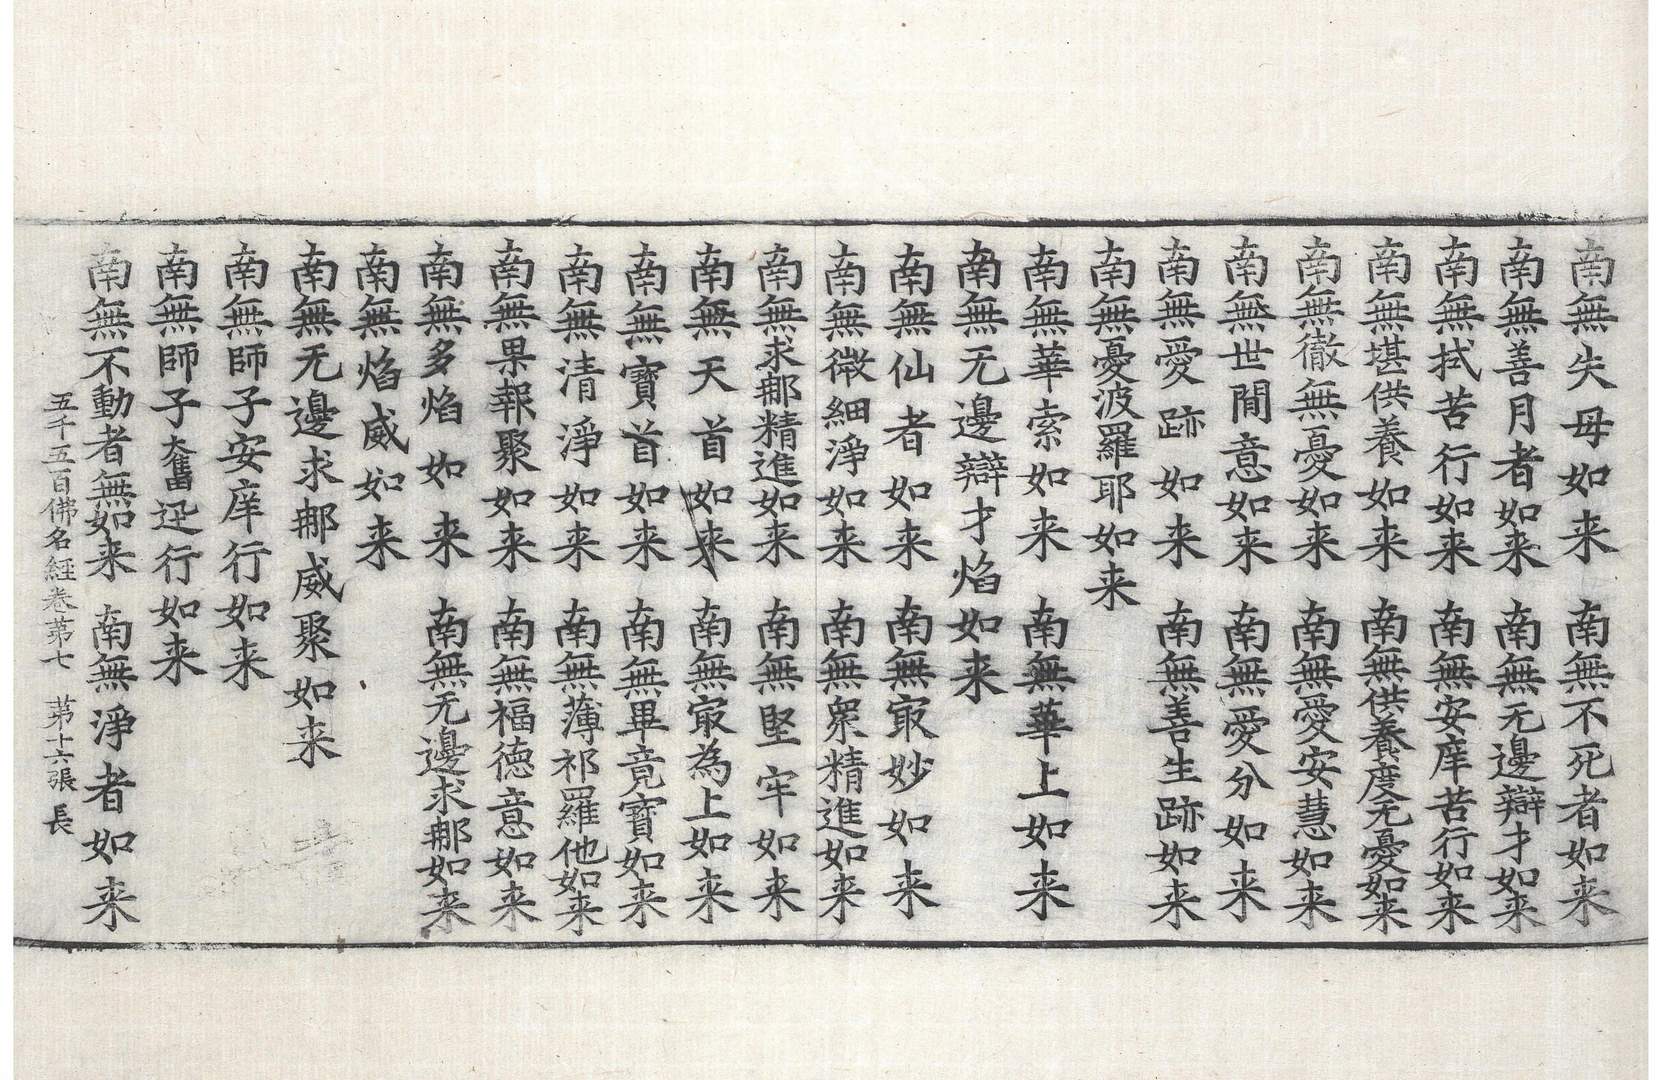 南無失母如来 南無不死者如来
南無善月者如来 南無无邊辯才如来
南無拭苦行如来 南無安庠苦行如来
南無堪供養如来 南無供養度无憂如来
南無徹無憂如来 南無愛安慧如来
南無世間意如来 南無愛分如来
南無愛跡如来 南無善生跡如来
南無憂波羅耶如来
南無華索如来 南無華上如来
南無无邊辯才焰如来
南無仙者如来 南無㝡妙如来
南無微細淨如来 南無衆精進如来
南無求那精進如来 南無堅牢如来
南無天首如来 南無㝡為上如来
南無寶首如来 南無畢竟寶如来
南無清淨如来 南無薄祁羅他如来
南無果報聚如来 南無福德意如来
南無多焰如来 南無无邊求那如来
南無焰威如来
南無无邊求那威聚如来
南無師子安庠行如来
南無師子奮迅行如来
南無不動者無如来 南無淨者如来
五千五百佛名經卷苐七 苐十六張 長